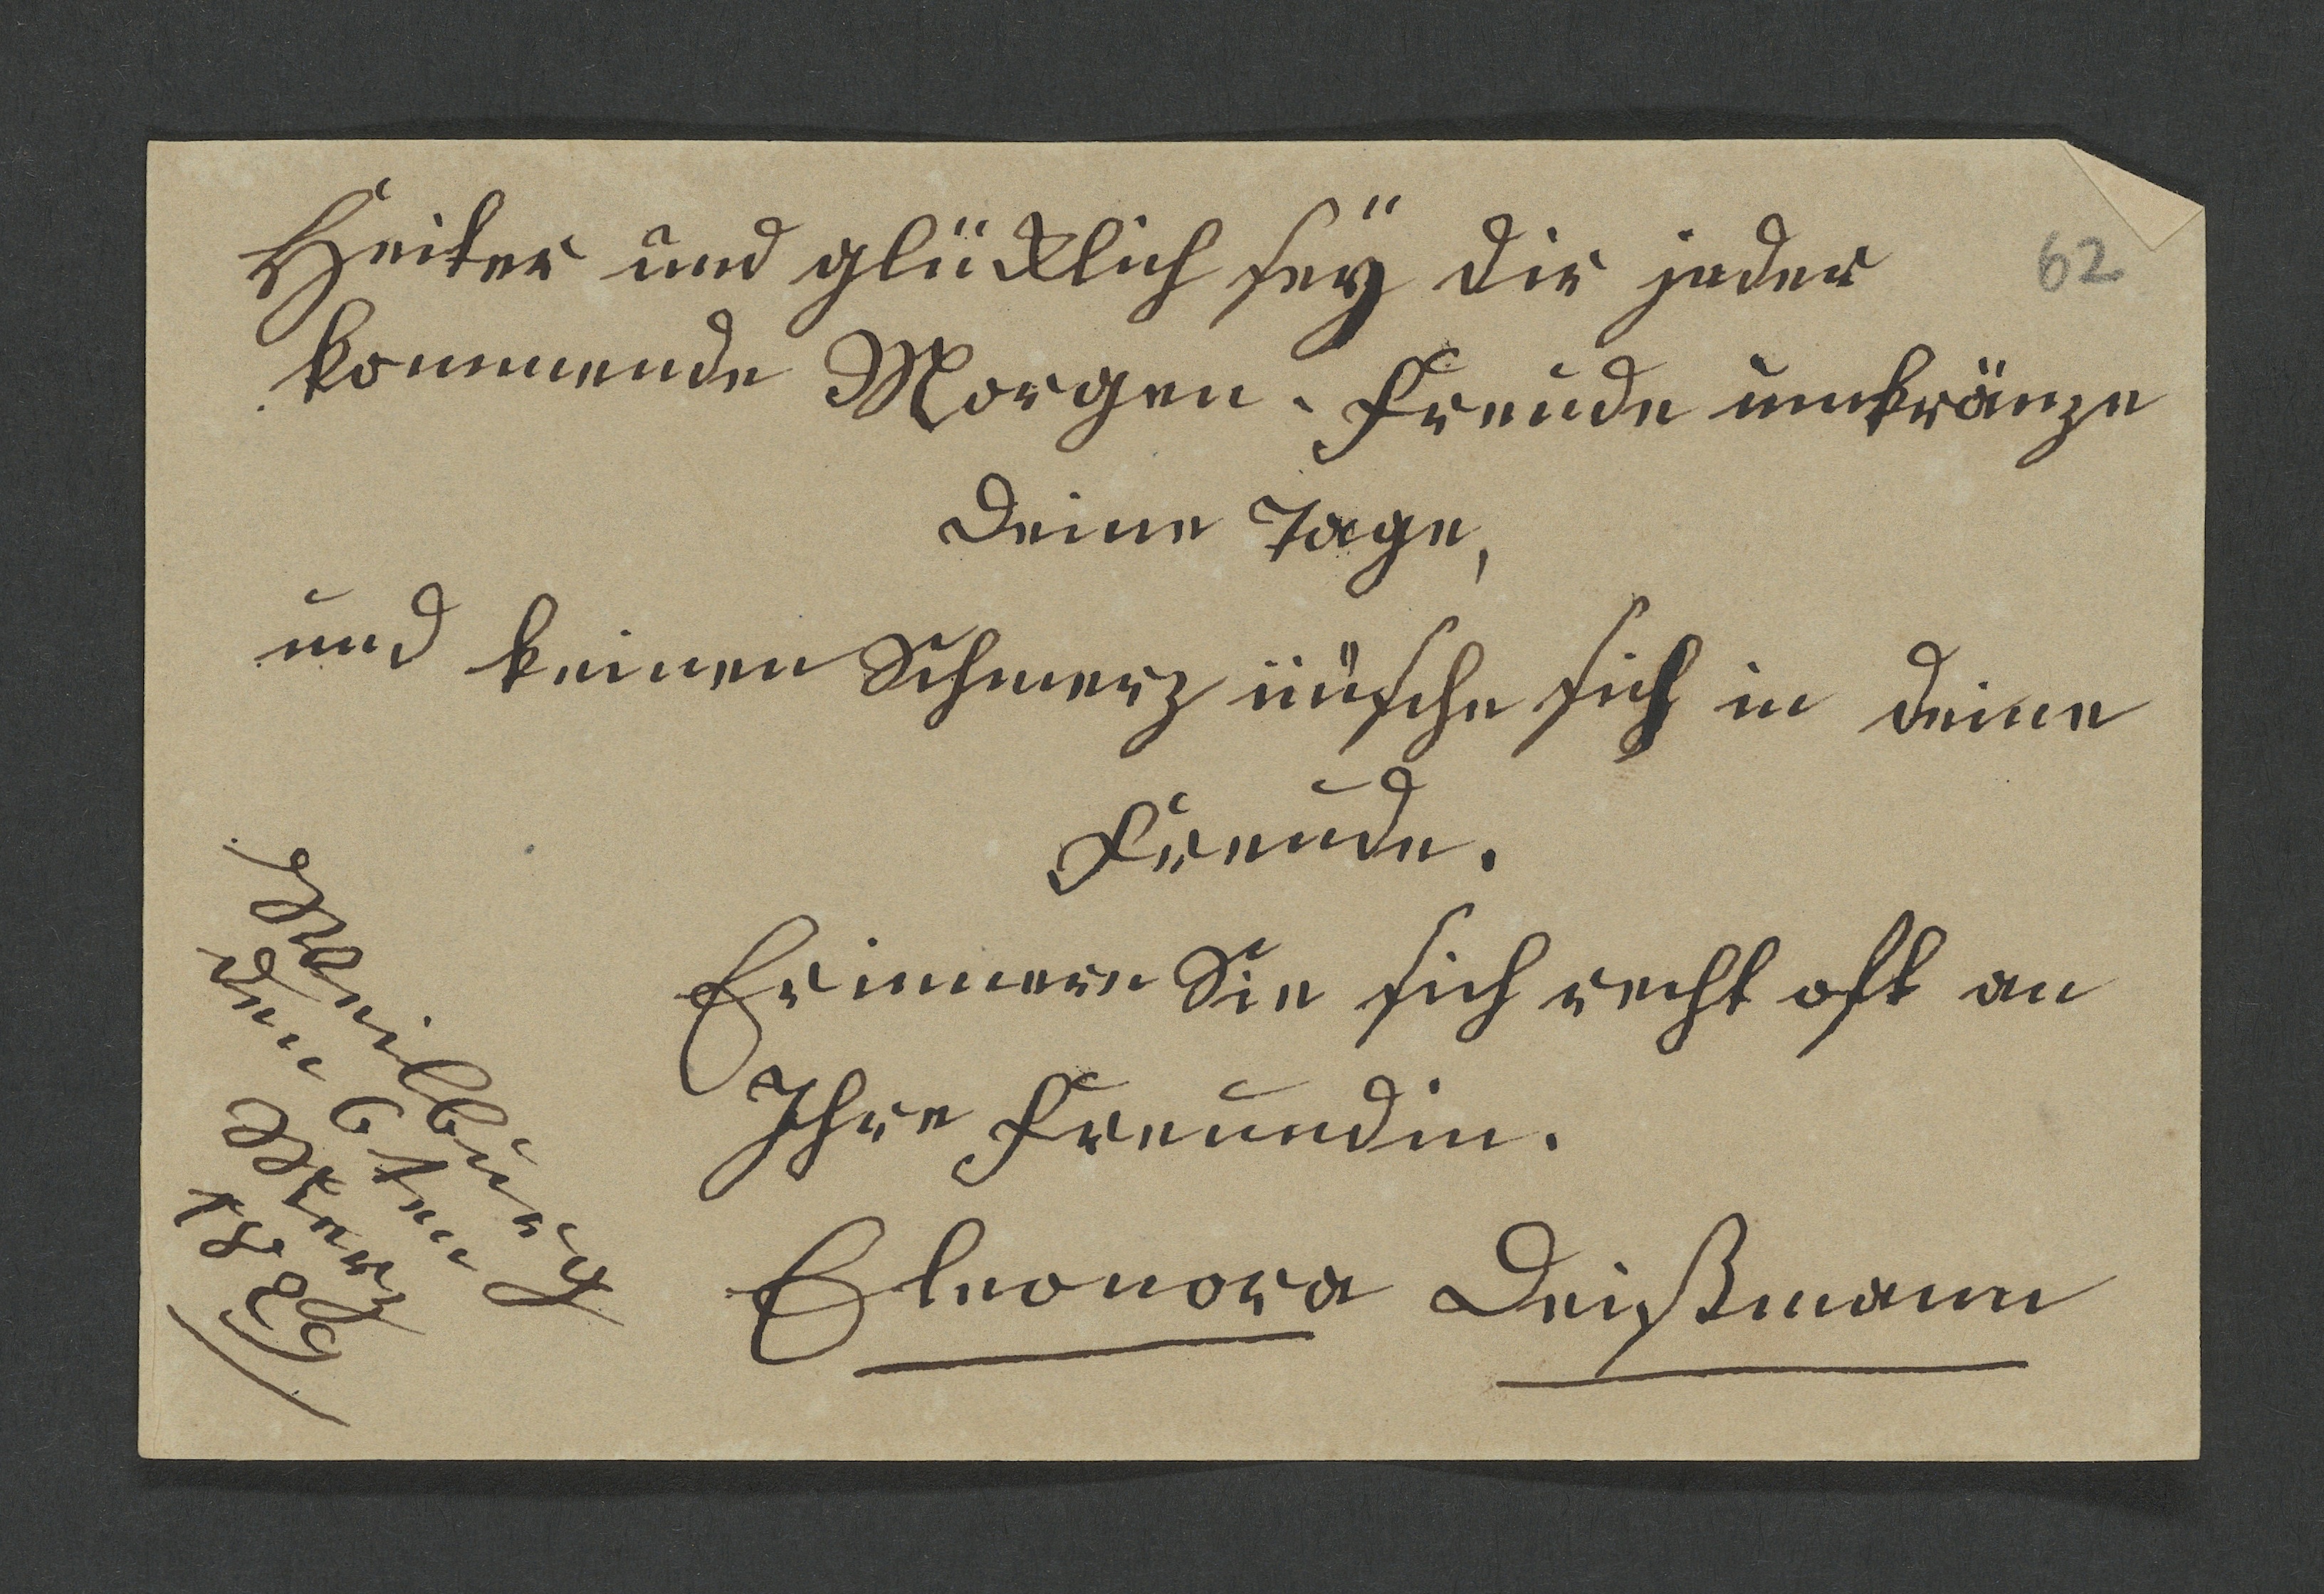 Heiter und glücklich seÿ dir jeder
62
kommende Morgen. Freude umkränze
Deine Tage,
und keinen Schmerz müsche sich in deine
Freude.
Erinnern Sie sich recht oft an
Ihre Freundin.
Eleonora Deißmann
Weilburg
den 6ten
Merz
1826